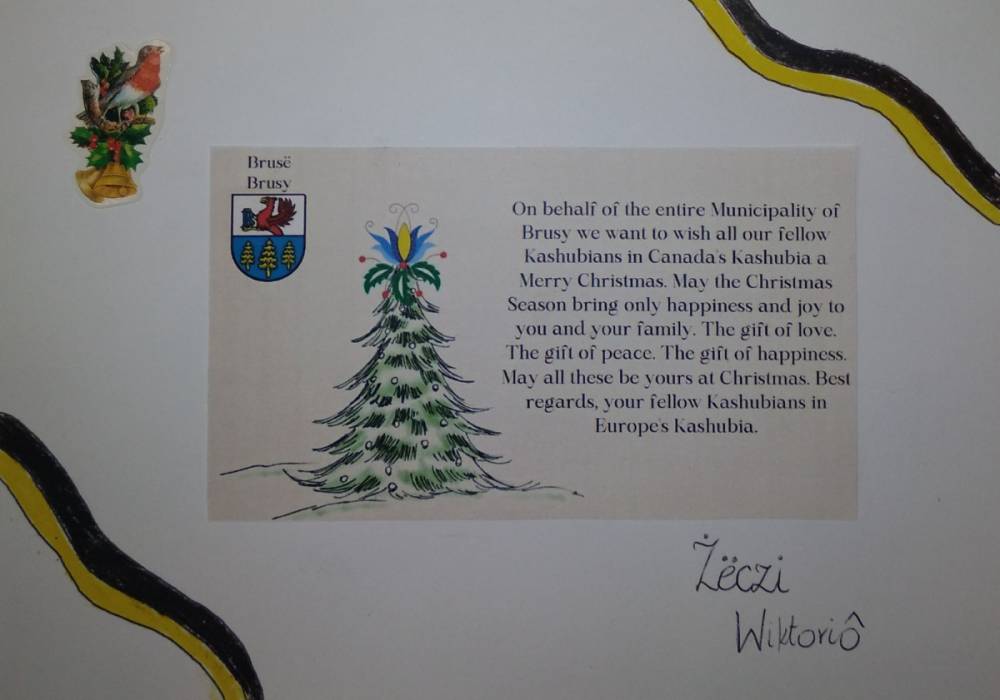 Brusë
Brusy
On behalf of the entire Municipality of
Brusy we want to wish all our fellow
Kashubians in Canada's Kashubia a
Merry Christmas. May the Christmas
Season bring only happiness and joy to
you and your family. The gift of love.
The gift of peace. The gift of happiness.
May all these be yours at Christmas. Best
regards, your fellow Kashubians in
Europe's Kashubia.
Żëczi
Wiktoriô